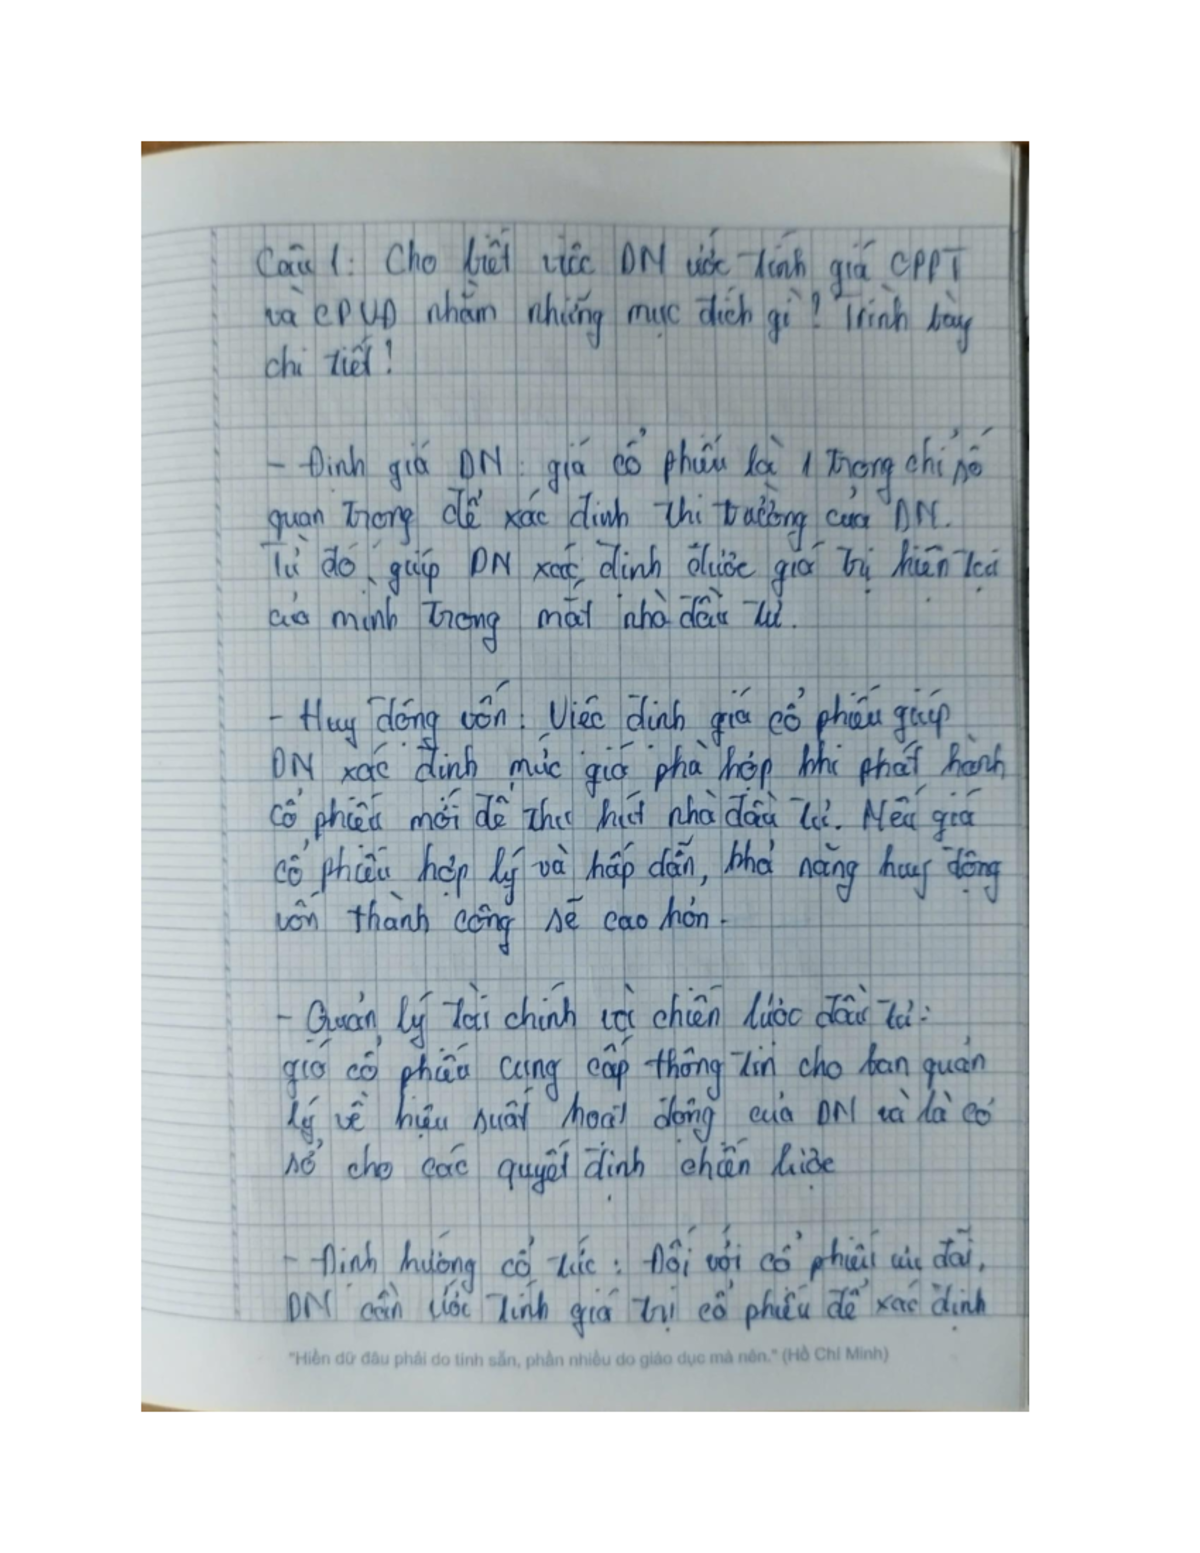 Câu 1: Cho biết việc DN ước tính giá CPPT
và CPUĐ nhằm những mục đích gì? Trình bày
chi tiết!
- Định giá DN: giá cổ phiếu là 1 trong chỉ số
quan trọng để xác định thị trường của DN.
Từ đó, giúp DN xác định được giá trị hiện tại
của mình trong mắt nhà đầu tư.
- Huy động vốn: Việc định giá cổ phiếu giúp
DN xác định mức giá phù hợp khi phát hành
cổ phiếu mới để thu hút nhà đầu tư. Nếu giá
cổ phiếu hợp lý và hấp dẫn, khả năng huy động
vốn thành công sẽ cao hơn.
- Quản lý tài chính và chiến lược đầu tư:
giá cổ phiếu cung cấp thông tin cho ban quản
lý về hiệu suất hoạt động của DN và là cơ
sở cho các quyết định chiến lược
- Định hướng cổ tức: Đối với cổ phiếu ưu đãi,
DN cần ước tính giá trị cổ phiếu để xác định
"Hiền dữ đâu phải do tính sẵn, phần nhiều do giáo dục mà nên." (Hồ Chí Minh)